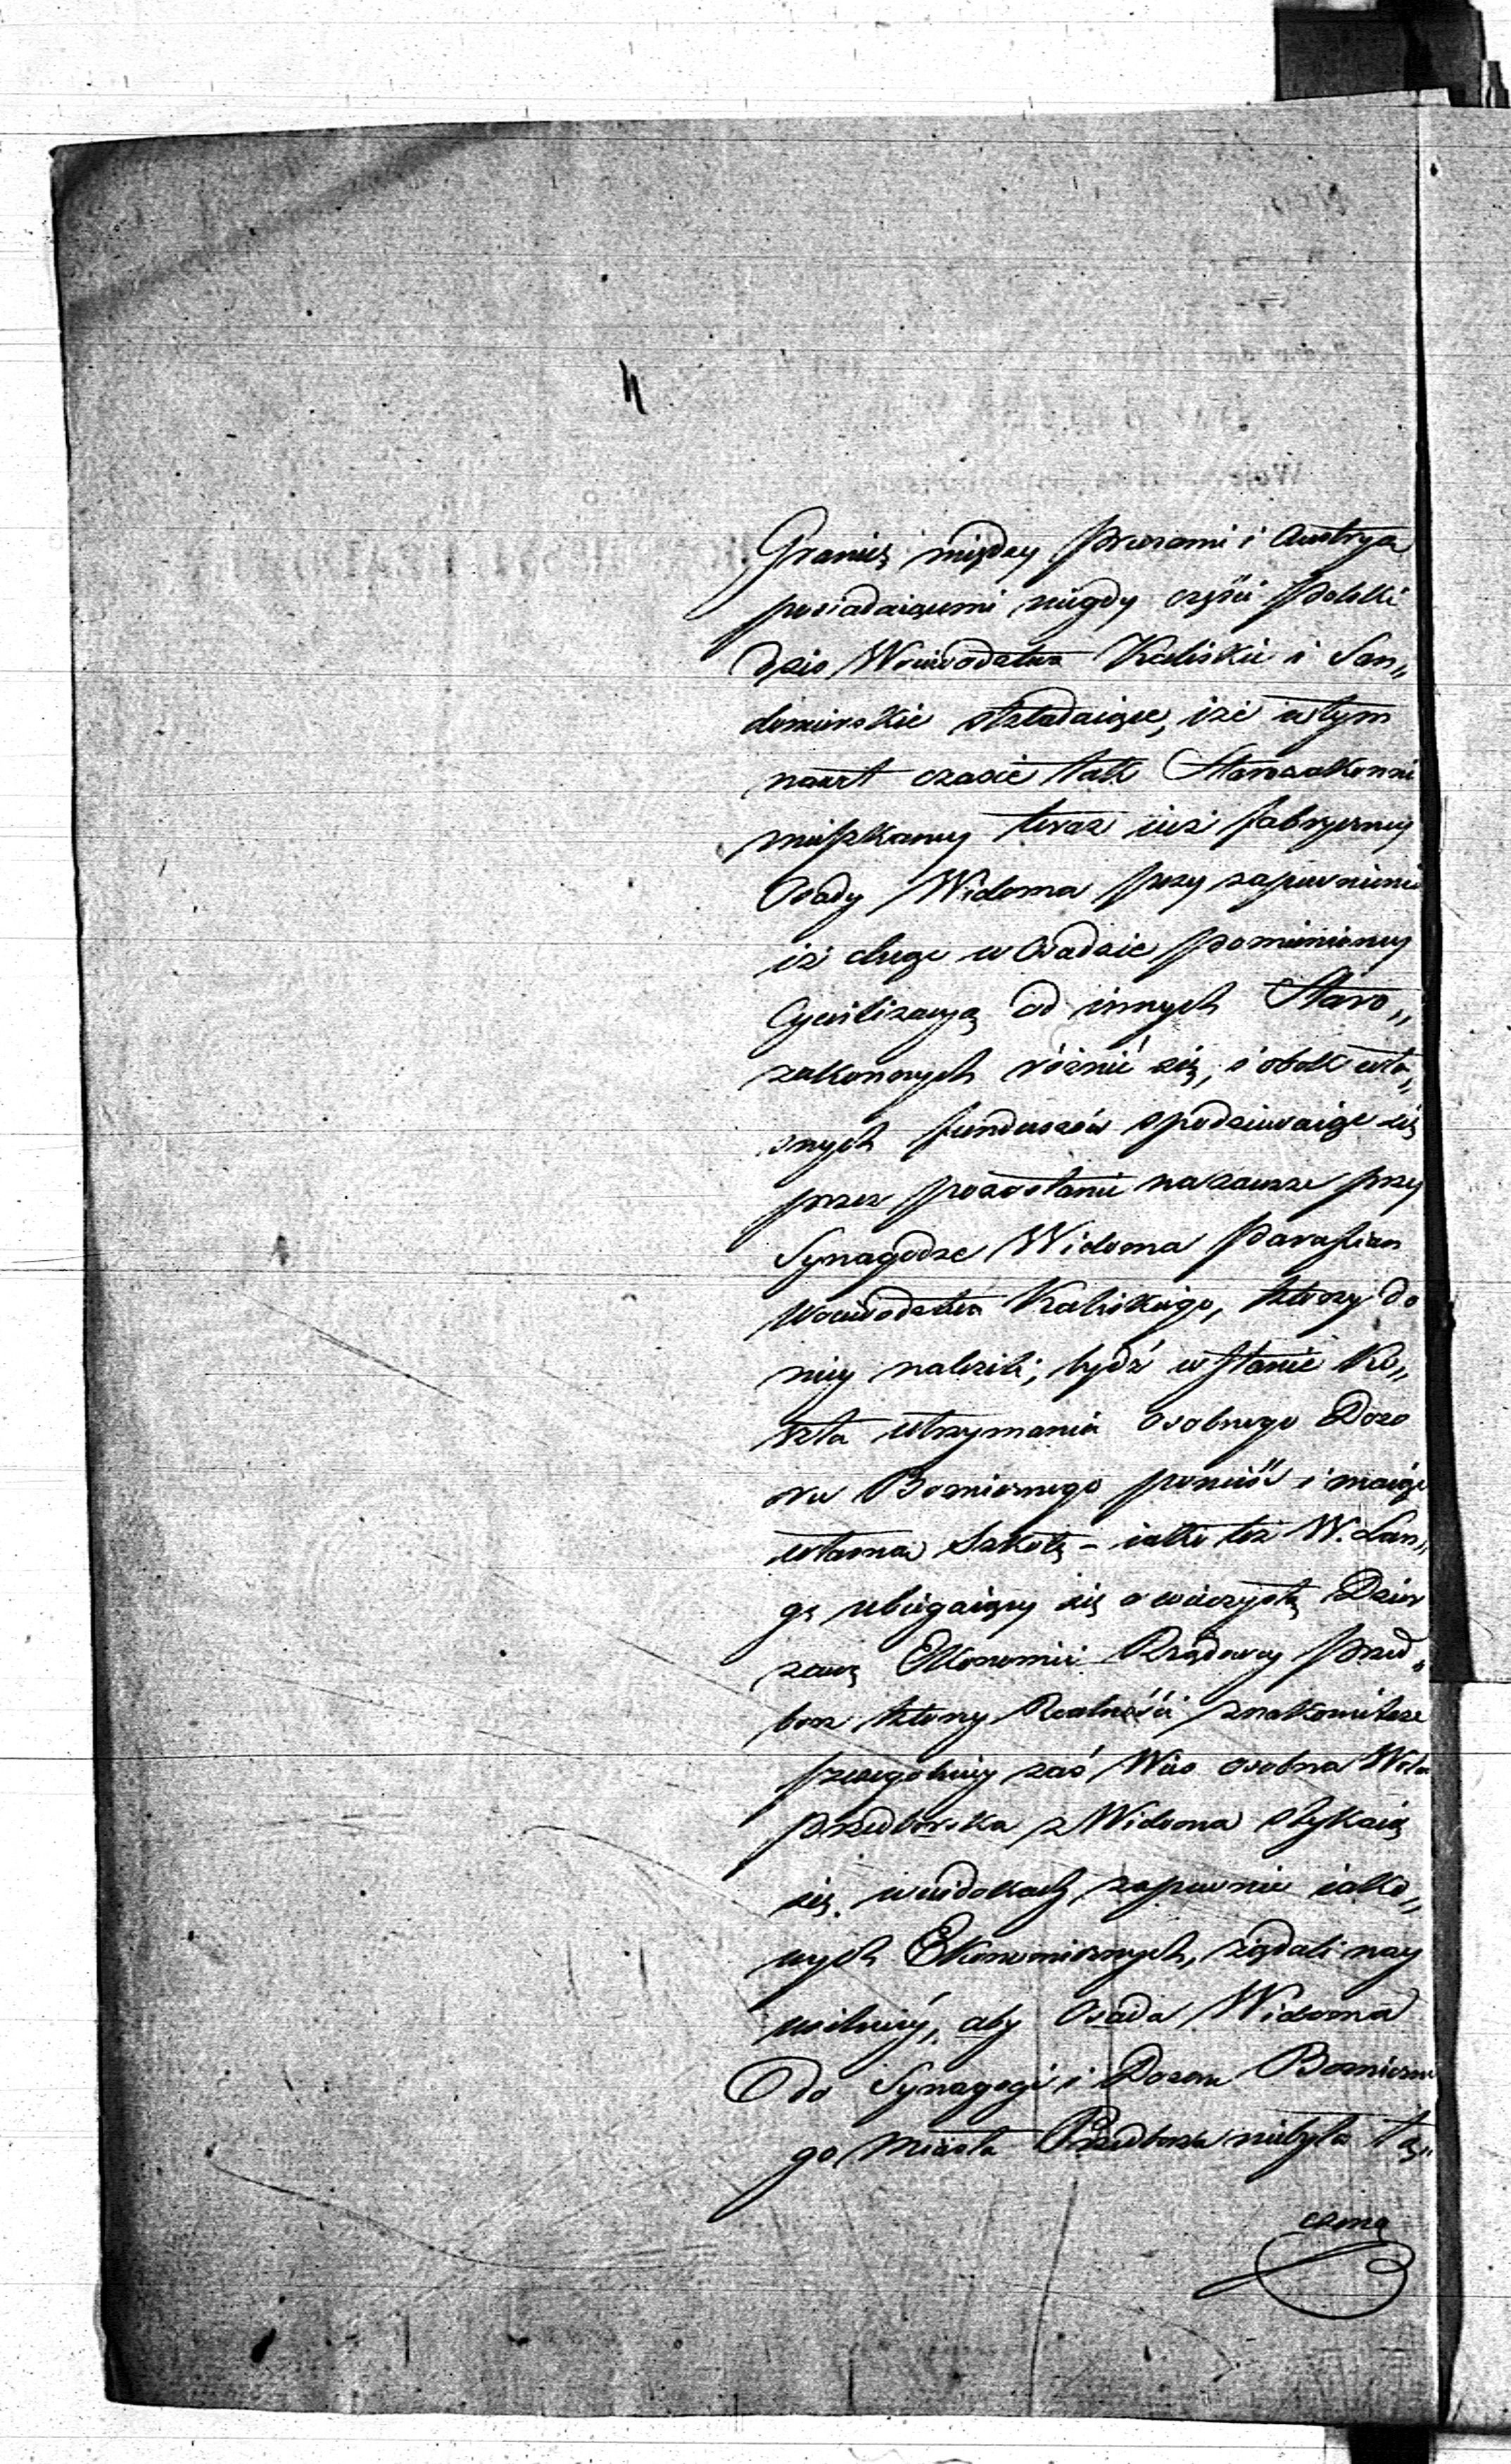 Granicą między Prusami i Austryą
posiadaiącemi niegdy części Polski
dziś Woiewodztwa Kaliskie i San„
domirskie składaiące, iże w tym
nawet czasie tak Starozakonni
mieszkańcy teraz iuż fabryczney
Osady Widoma przy zapewnieniu
iż chcąc w Osadzie pomienioney
Cywilizacyą od innych Staro„
zakonnych róźnić się, i obok wła„
snych funduszów spodziewaiąc się
przez pozostanie na zawsze przy
Synagodze Widoma Parafian
Woiewodztwa Kaliskiego, którzy do
niey należeli, bydź w stanie Ko„
szta utrzymania osobnego Dozo
oru Bożnicznego ponieść i maiąc
własną Szkołę – iako też W. Lan„
ge ubiegaiący się o wieczystą Dzier
żawę Ekonomii Rządowey Przed„
borz którey Realności znakomitsze
szczegolniey zaś Wieś osobna Wola
Przedborska z Widoma stykaią
się, w widokach zapewnie iako„
wych Ekonomicznych, żądali nay
usilniéy, aby Osada Widoma
do Synagogi i Dozoru Bożniczne
go Miasta Przedborza niebyła łą„
czona